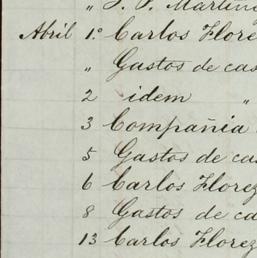 " J. P. Martine
Abril 1.° Carlos Flore
" Gastos de cas
2 idem "
3 Compañia
5 Gastos de ca
6 Carlos Florez
8 Gastos de ca
13 Carlos Florez